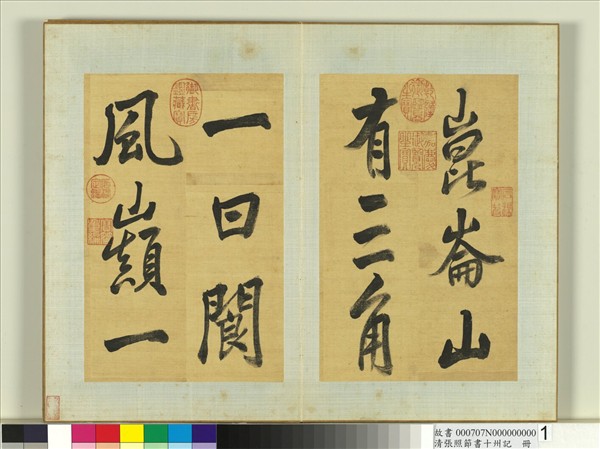 崑崙山
有三角
一曰閬
風山巔一
故書 000707N000000000 1
清張照節書十州記 冊